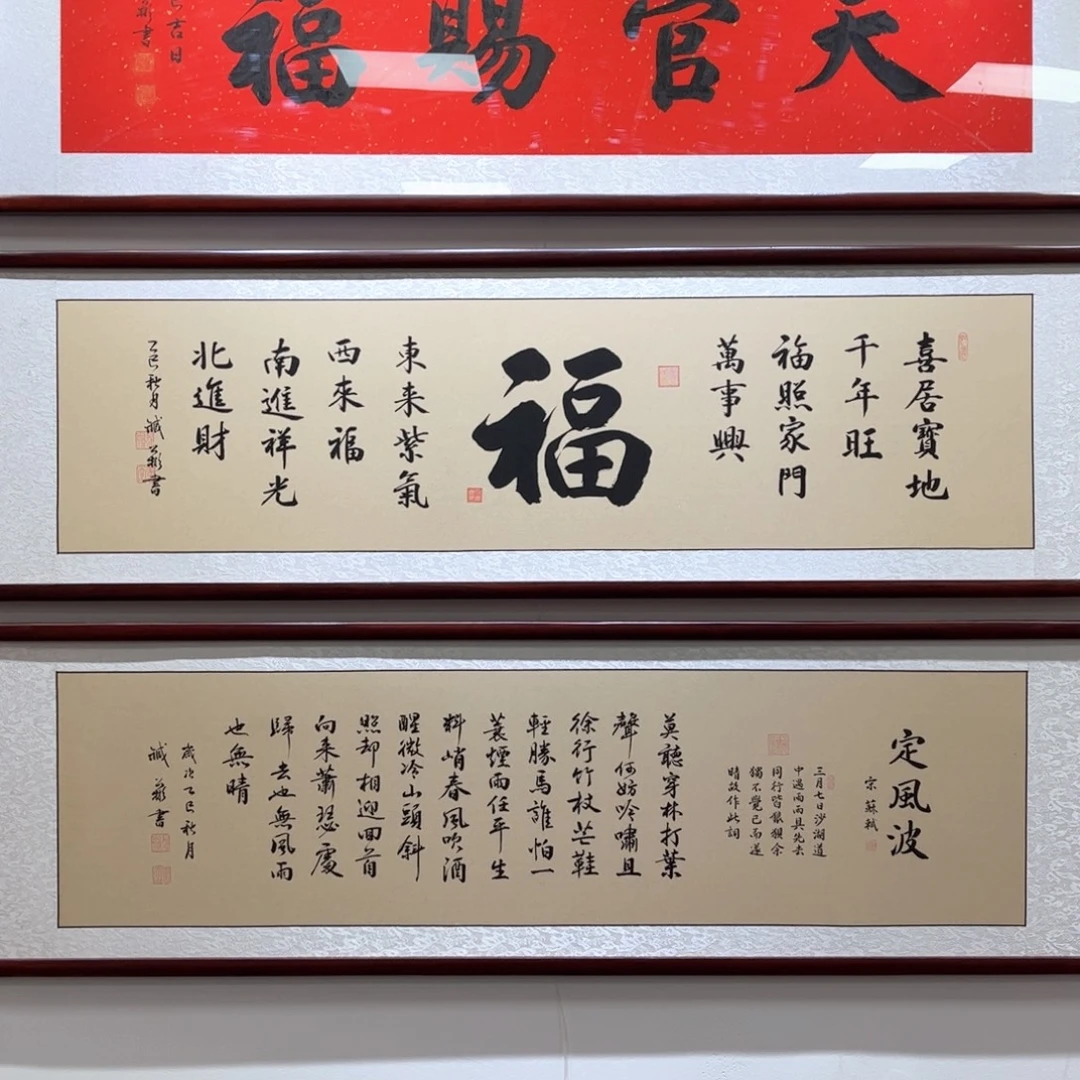 天官賜福
吉日
書
喜居寶地
千年旺
福照家門
萬事興
福
東来紫氣
西來福
南進祥光
北進財
乙巳秋月
書
定風波
宗蘇軾
三月七日沙湖道
中遇雨雨具先去
同行皆狼狽余
獨不覺已而遂
晴故作此詞
莫聽穿林打葉
聲何妨吟嘯且
徐行竹杖芒鞋
輕勝馬誰怕一
蓑煙雨任平生
料峭春風吹酒
醒微冷山頭斜
照却相迎回首
向来蕭瑟處
歸去也無風雨
也無晴
歲次乙巳秋月
書